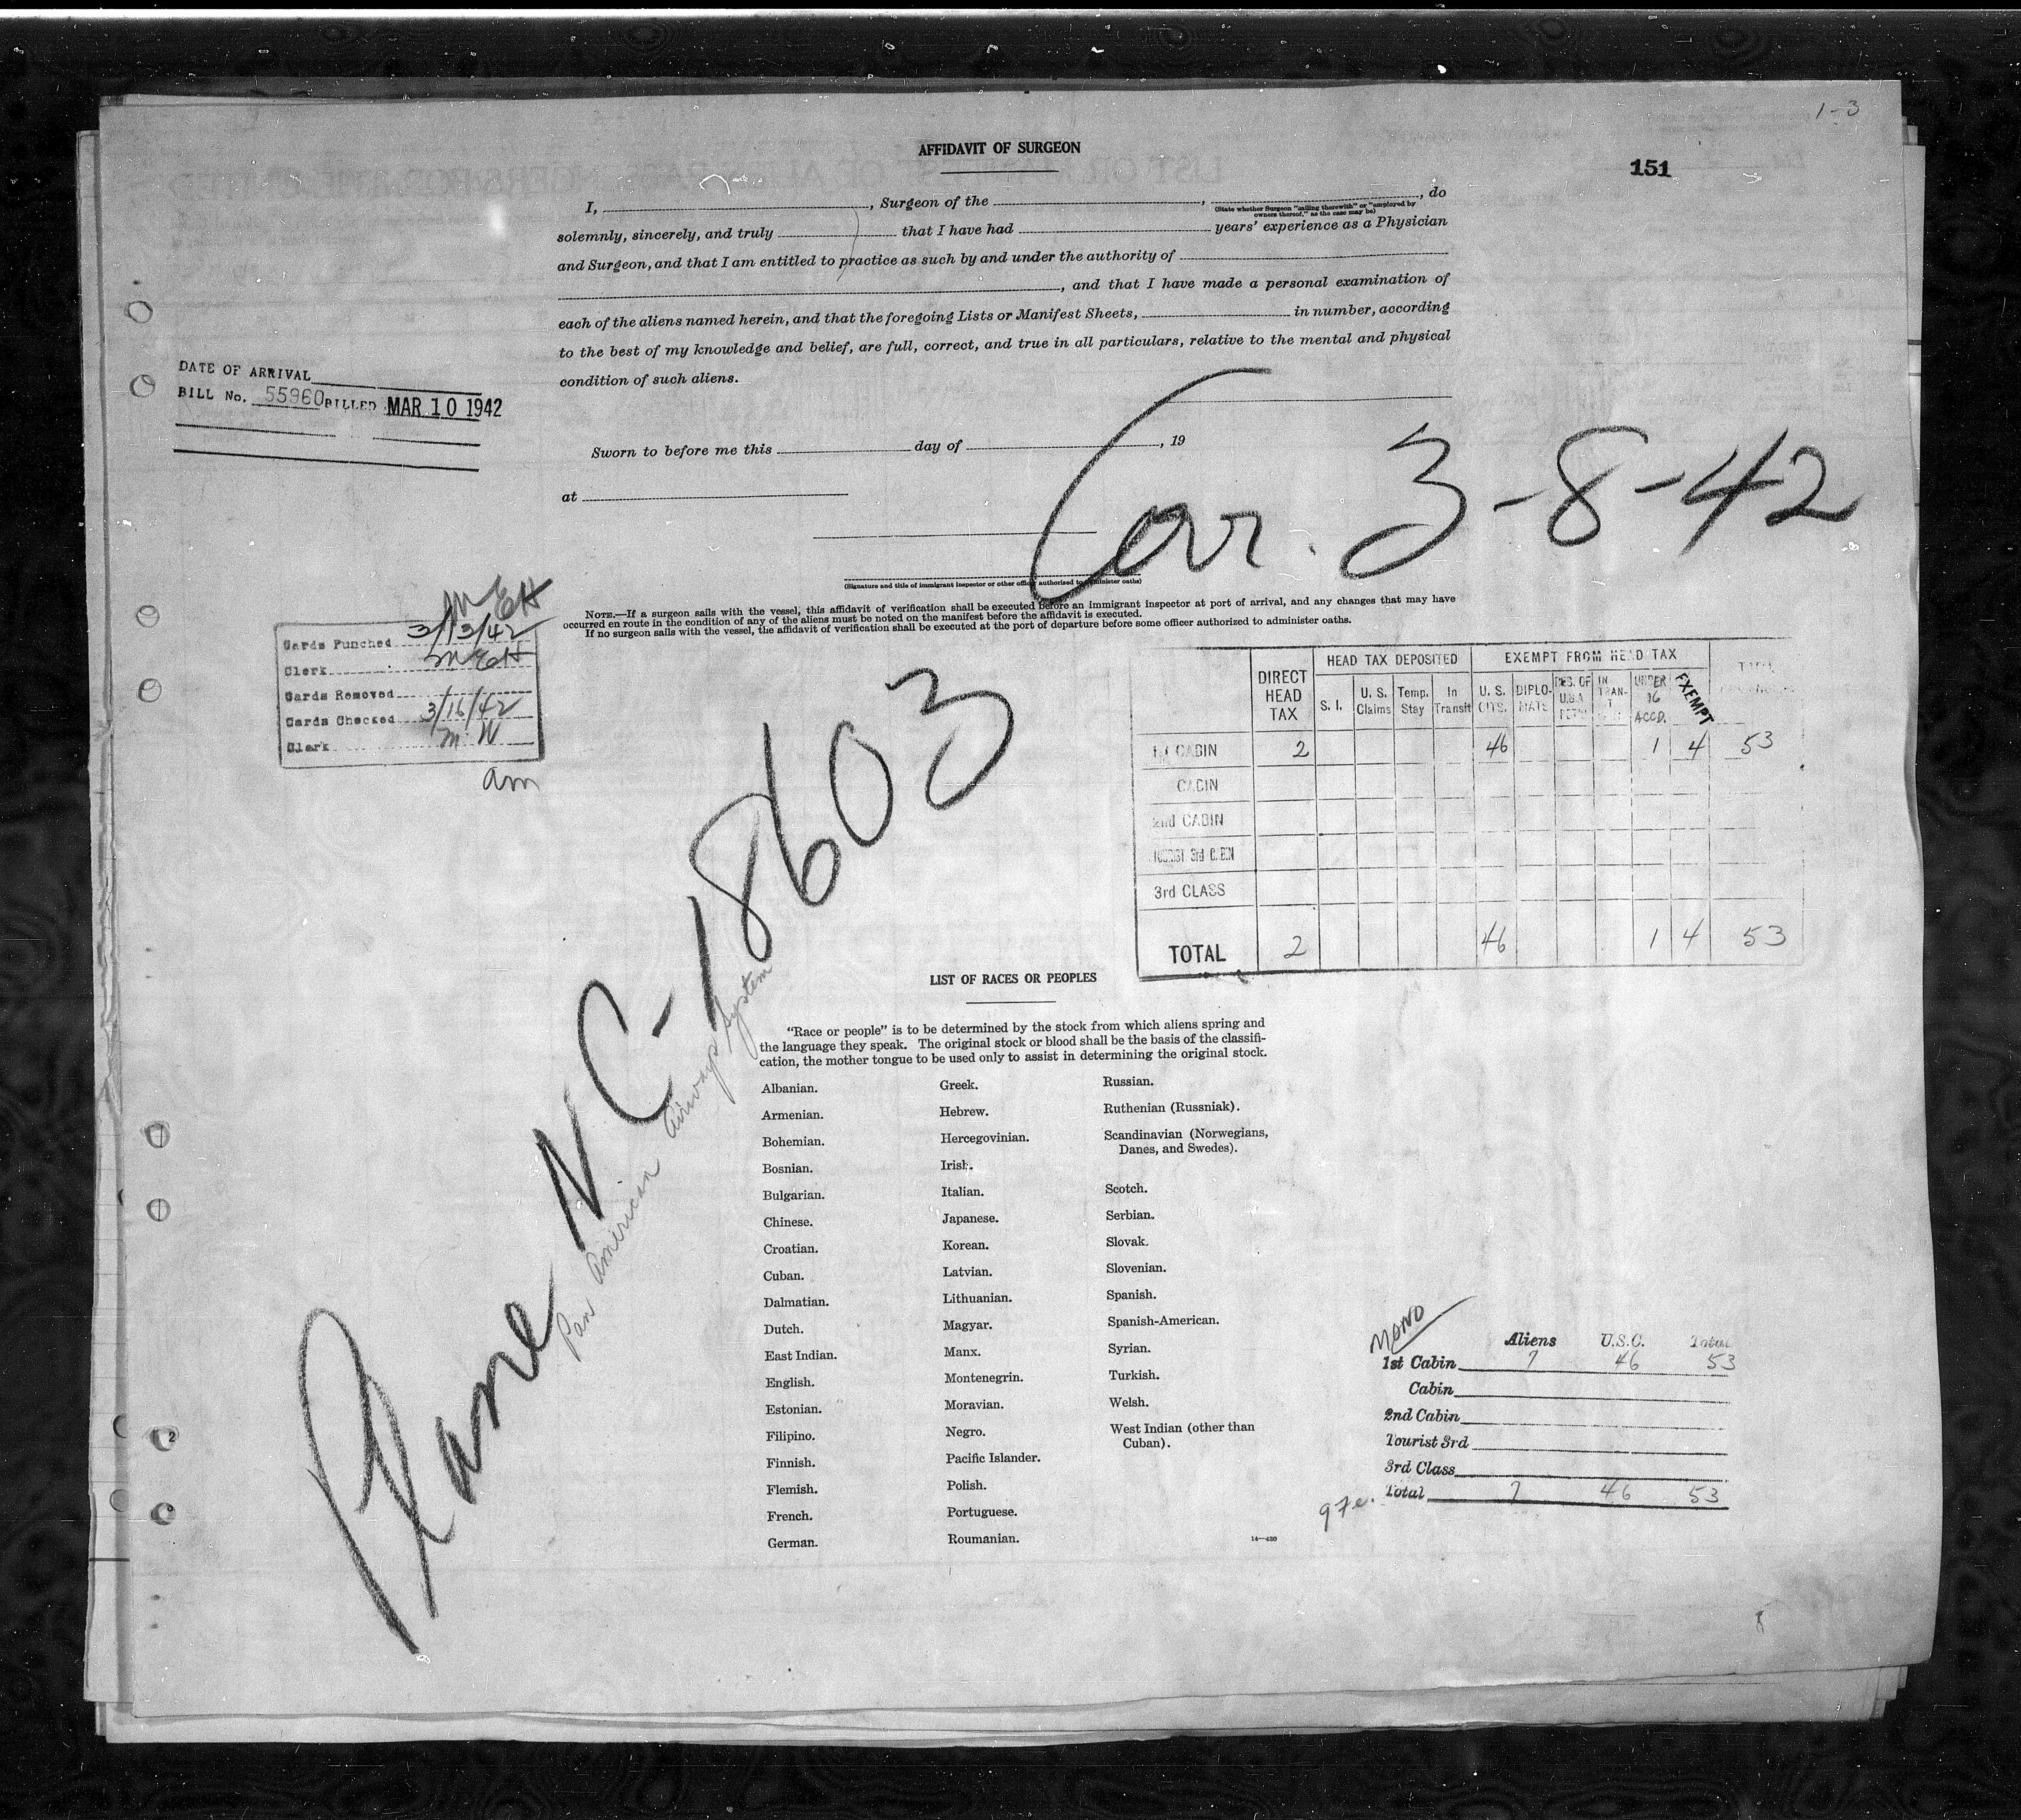 1-3
AFFIDAVIT OF SURGEON
151
I, , Surgeon of the , , do
(State whether Surgeon "sailing therewith" or "employed by
owners thereof," as the case may be)
solemnly, sincerely, and truly that I have had years' experience as a Physician
and Surgeon, and that I am entitled to practice as such by and under the authority of
, and that I have made a personal examination of
each of the aliens named herein, and that the foregoing Lists or Manifest Sheets, in number, according
to the best of my knowledge and belief, are full, correct, and true in all particulars, relative to the mental and physical
condition of such aliens.
DATE OF ARRIVAL
BILL No. 55960 BILLED MAR 10 1942
Sworn to before me this day of , 19
at
arr. 3-8-42
(Signature and title of immigrant inspector or other officer authorized to administer oaths)
NOTE.—If a surgeon sails with the vessel, this affidavit of verification shall be executed before an immigrant inspector at port of arrival, and any changes that may have
occurred en route in the condition of any of the aliens must be noted on the manifest before the affidavit is executed.
If no surgeon sails with the vessel, the affidavit of verification shall be executed at the port of departure before some officer authorized to administer oaths.
MEH
Cards Punched 3/13/42
Clerk MEH
Cards Removed
Cards Checked 3/16/42
Clerk M W
am
DIRECT HEAD TAX
HEAD TAX DEPOSITED
EXEMPT FROM HEAD TAX
S. I.
U. S. Claims
Temp. Stay
In Transit
U. S. CITS.
DIPLO-MATS
RES. OF U.S.A.
IN TRAN-
UNDER 16 ACCD.
EXEMPT
1st CABIN 2 46 1 4 53
CABIN
2nd CABIN
TOURIST 3rd CABIN
3rd CLASS
TOTAL 2 46 1 4 53
Plane NC-18603
Pan American Airways System
LIST OF RACES OR PEOPLES
"Race or people" is to be determined by the stock from which aliens spring and
the language they speak. The original stock or blood shall be the basis of the classifi-
cation, the mother tongue to be used only to assist in determining the original stock.
Albanian.
Armenian.
Bohemian.
Bosnian.
Bulgarian.
Chinese.
Croatian.
Cuban.
Dalmatian.
Dutch.
East Indian.
English.
Estonian.
Filipino.
Finnish.
Flemish.
French.
German.
Greek.
Hebrew.
Hercegovinian.
Irish.
Italian.
Japanese.
Korean.
Latvian.
Lithuanian.
Magyar.
Manx.
Montenegrin.
Moravian.
Negro.
Pacific Islander.
Polish.
Portuguese.
Roumanian.
Russian.
Ruthenian (Russniak).
Scandinavian (Norwegians,
Danes, and Swedes).
Scotch.
Serbian.
Slovak.
Slovenian.
Spanish.
Spanish-American.
Syrian.
Turkish.
Welsh.
West Indian (other than
Cuban).
14—430
MONO
Aliens U.S.C. Total
1st Cabin 7 46 53
Cabin
2nd Cabin
Tourist 3rd
3rd Class
Total 7 46 53
2